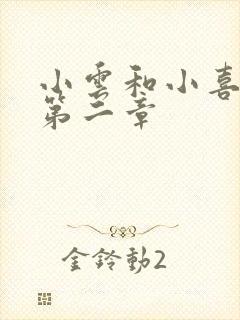 小雲和小喜
第二章
金鈴動2